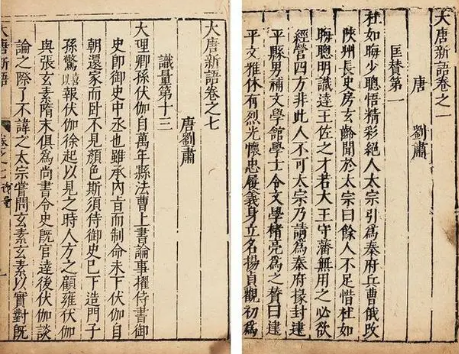 大唐新語卷之一
唐 劉肅
匡贊第一
杜如晦少聰悟精彩絕人太宗引爲秦府兵曹俄改
陝州長史房玄齡聞於太宗曰餘人不足惜杜如
晦聰明識達王佐之才若大王守藩無用之必欲
經營四方非此人不可太宗乃請爲秦府掾封建
平縣男補文學館學士令文學褚亮爲之贊曰建
平文雅休有烈光懷忠履義身立名揚貞觀初爲
大唐新語卷之七
唐劉肅
識量第十三
大理卿孫伏伽自萬年縣法曹上書論事擢侍書御
史即御史中丞也雖承內旨而制命未下伏伽自
朝還家而卧不見顏色斯須侍御史已下造門子
孫驚報伏伽徐起以見之時人方之顧雍伏伽
與張玄素隋末俱爲尚書令史既官達後伏伽談
論之際了不諱之太宗嘗問玄素玄素以實對既
大唐新語 卷之七